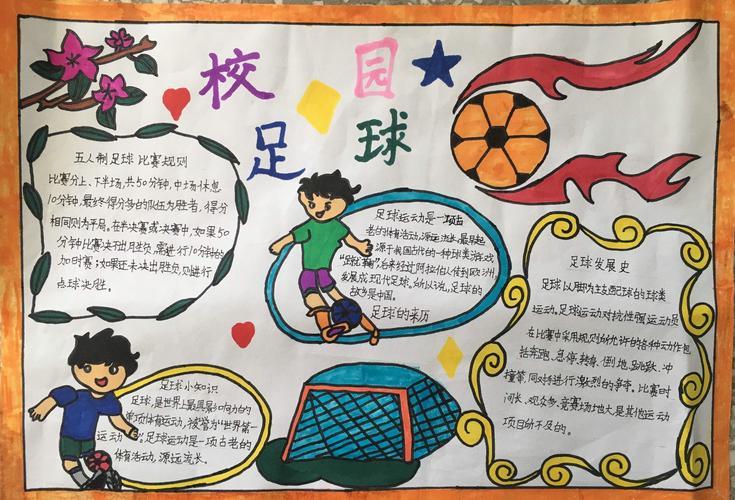 校园
足球
五人制足球比赛规则
比赛分上、下半场,共50分钟,中场休息
10分钟,最终得分多的队伍为胜者,得分
相同则为平局。在半决赛或决赛中,如果50
分钟比赛决不出胜负,需进行10分钟的
加时赛,如果还未决出胜负则进行
点球决胜。
足球运动是一项古
老的体育活动,源远流长,最早起
源于我国古代的一种球类游戏
"蹴鞠",后来经过阿拉伯人传到欧洲,
发展成现代足球,所以说,足球的
故乡是中国。
足球的来历
足球发展史
足球以脚为支配球的球类
运动。足球运动对抗性强,运动员
在比赛中采用规则所允许的各种动作包
括奔跑、急停、转身、倒地、跳跃、冲
撞等,同对手进行激烈的争夺。比赛时
间长、观众多、竞赛场地大是其他运动
项目所不及的。
足球小知识
足球,是世界上最具影响力的
单项体育运动,被誉为"世界第一
运动"。足球运动是一项古老的
体育活动,源远流长。